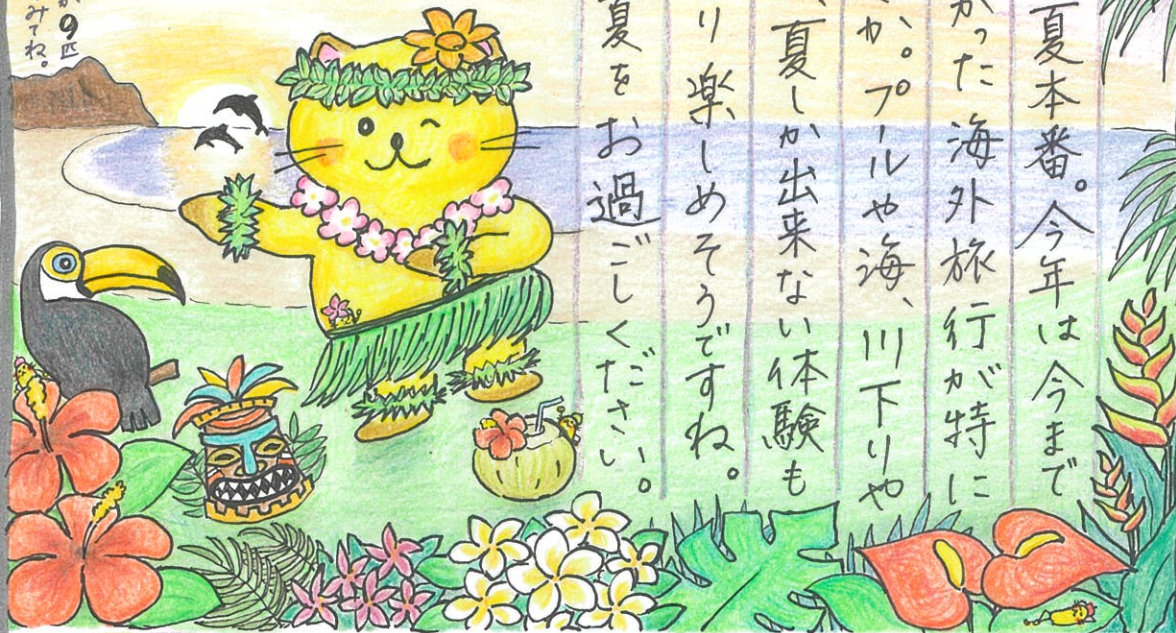 夏本番。今年は今まで
かった海外旅行が特に
か。プールや海、川下りや
、夏しか出来ない体験も
り楽しめそうですね。
夏をお過ごしください。
が9匹
みてね。